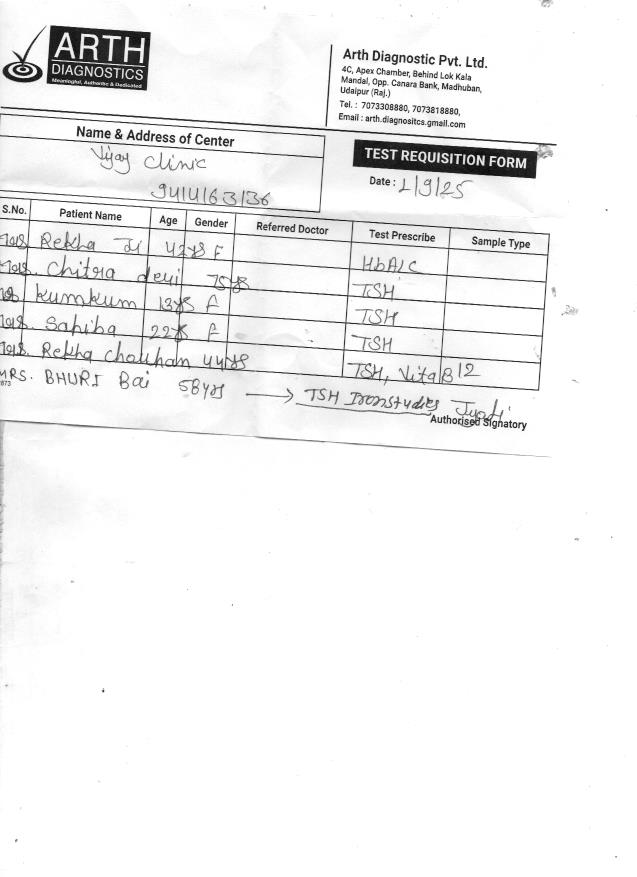 ARTH
DIAGNOSTICS
Meaningful, Authentic & Dedicated
Arth Diagnostic Pvt. Ltd.
4C, Apex Chamber, Behind Lok Kala
Mandal, Opp. Canara Bank, Madhuban,
Udaipur (Raj.)
Tel. : 7073308880, 7073818880,
Email : arth.diagnositcs.gmail.com
Name & Address of Center
Vijay Clinic
9414163136
TEST REQUISITION FORM
Date : 1/9/25
S.No. Patient Name Age Gender Referred Doctor Test Prescribe Sample Type
Rekha 42yrs F HbA1C
Chitra devi 75yrs TSH
Kumkum 13yrs F TSH
Sahiba 22yrs F TSH
Rekha Chouhan 44yrs TSH, Vita B12
MRS. BHURI Bai 58yrs → TSH Iron Studies Jyoti
873
Authorised Signatory